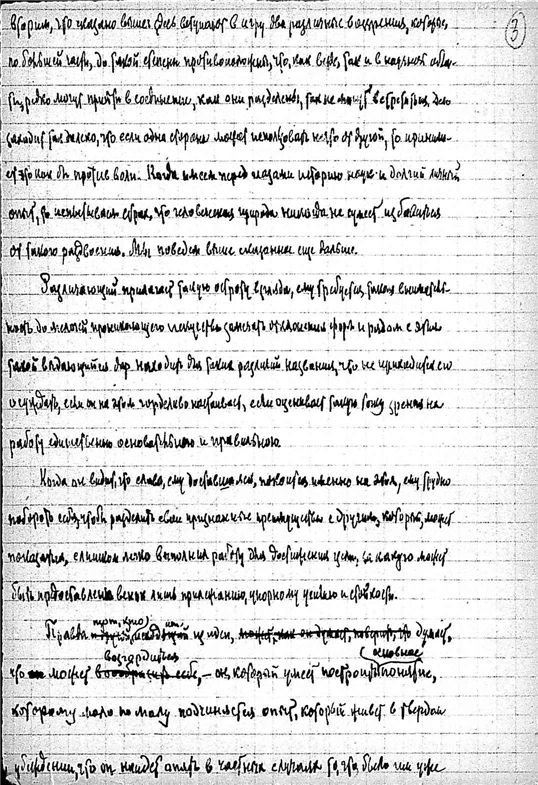 3
вторим, что сказано выше: здесь вступают в игру два различные воззрения, которые,
по большей части, до такой степени противоположны, что, как везде, так и в научной обла-
сти, редко могут притти в соединение, как они разделены, так не могут встретиться. Дело
заходит так далеко, что если одна сторона может использовать нечто от другой, то принима-
ет это как бы против воли. Когда имеем перед глазами историю наук и долгий личный
опыт, то испытываем страх, что человеческая природа никогда не сумеет избавиться
от такого раздвоения. Мы поведем выше сказанное еще дальше.
Различающий прилагает такую остроту взгляда, ему требуется такая вниматель-
ность до мелочей проникающего искусства замечать отклонения форм и рядом с этим
такой выдающийся дар находить для таких различий названия, что не приходится его
осуждать, если он на этом горделиво настаивает, если оценивает такую точку зрения на
работу единственно основательною и правильною.
Когда он видит, что слава, ему доставшаяся, покоится именно на этом, ему трудно
побороть себя, чтобы разделить свои признанные преимущества с другими, которые, может
показаться, слишком легко выполнил работу для достижения цели, за какую может
быть предоставлен венок лишь прилежанию, упорному усилию и стойкости.
Правда из идеи, может, как он думает, что думает,
возгордиться основное
что может себе, – он, который умеет построить понятие,
которому мало по малу подчиняется опыт, который живет в твердом
убеждении, что он найдет опять в частных случаях то, что было им уже